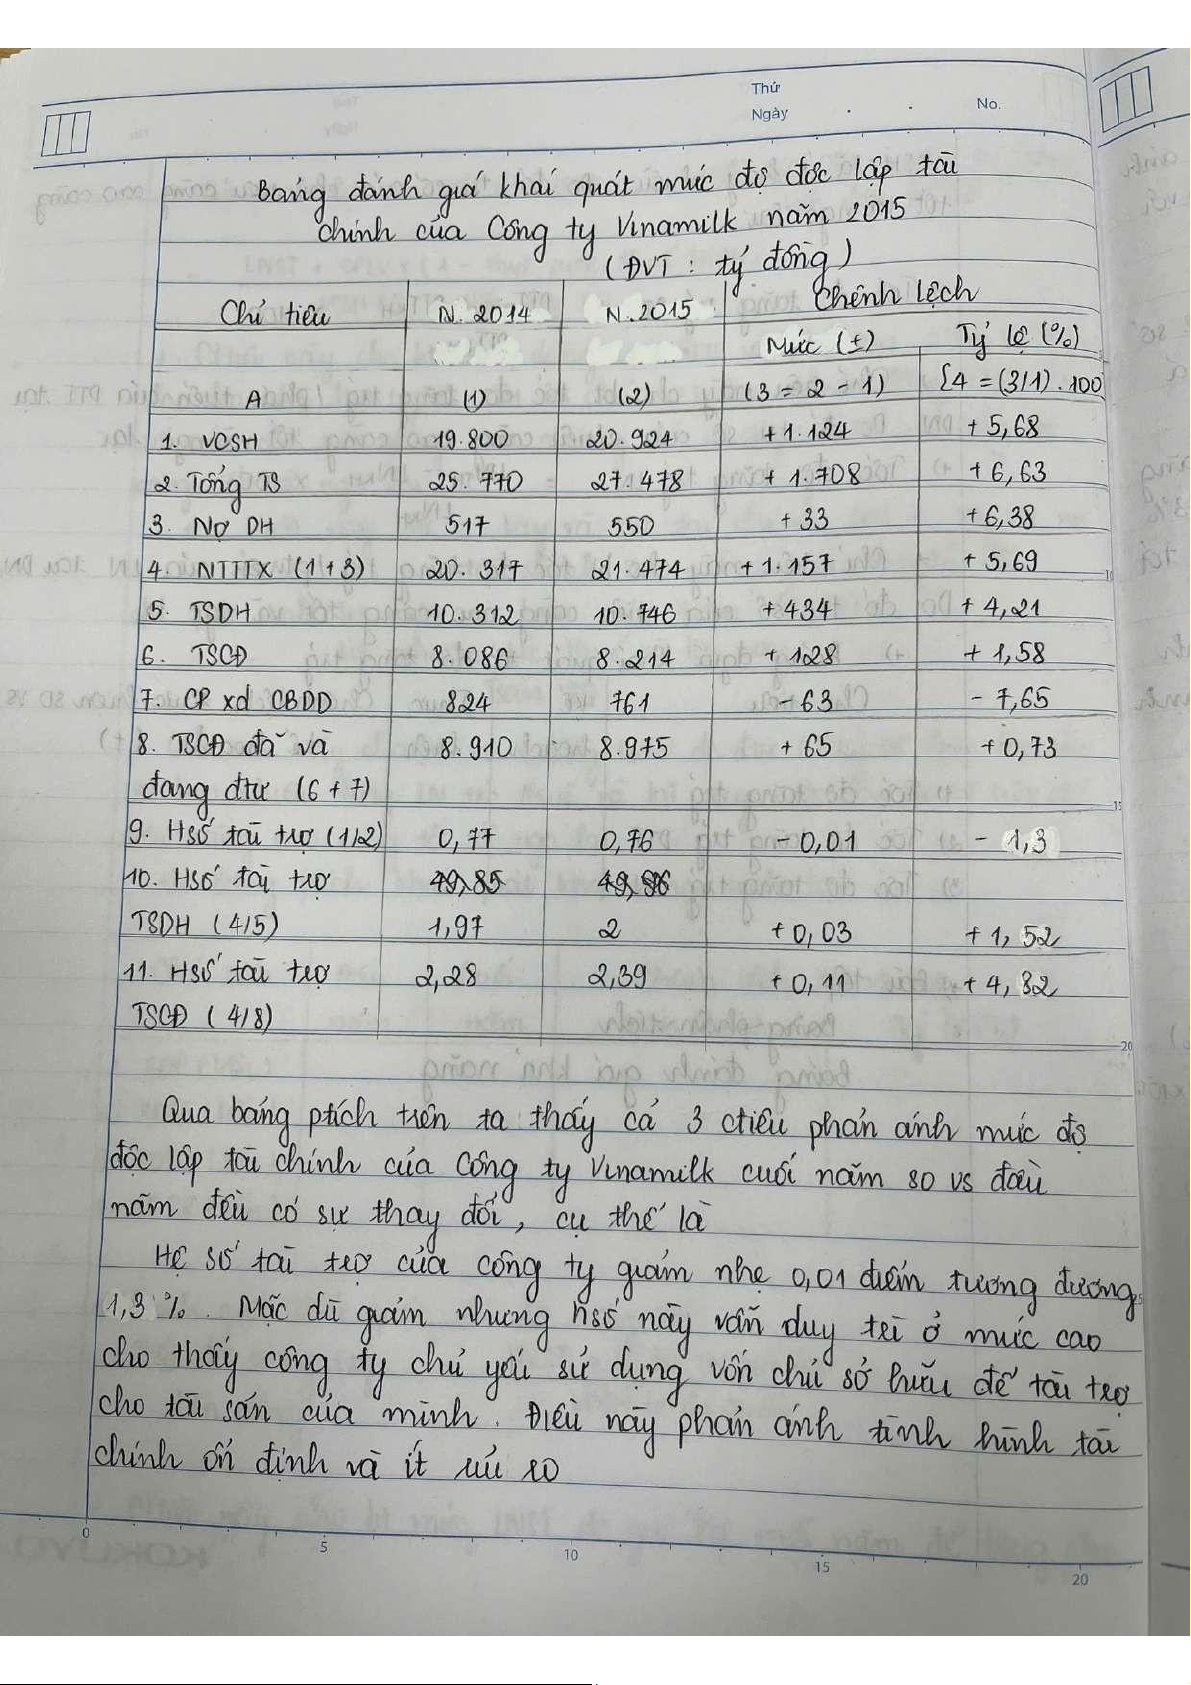 Thứ
Ngày . . No.
Bảng đánh giá khái quát mức độ độc lập tài
chính của Công ty Vinamilk năm 2015
(ĐVT : tỷ đồng)
Chỉ tiêu N. 2014 N. 2015 Chênh lệch
Mức (±) Tỷ lệ (%)
A (1) (2) (3 = 2 - 1) {4 = (3/1) . 100
1. VCSH 19.800 20.924 +1.124 + 5,68
2. Tổng TS 25.770 27.478 + 1.708 + 6,63
3. Nợ DH 517 550 +33 +6,38
4. NTTTX (1+3) 20.317 21.474 +1.157 + 5,69
5. TSDH 10.312 10.746 +434 + 4,21
6. TSCĐ 8.086 8.214 + 128 + 1,58
7. CP xd CBDD 824 761 - 63 - 7,65
8. TSCĐ đã và 8.910 8.975 + 65 +0,73
đang đtư (6+7)
9. HSố tài trợ (1/2) 0,77 0,76 - 0,01 - 1,3
10. HSố tài trợ
TSDH (4/5) 1,97 2 +0,03 +1,52
11. HSố tài trợ 2,28 2,39 +0,11 + 4,82
TSCĐ (4/8)
Qua bảng ptích trên ta thấy cả 3 ctiêu phản ánh mức độ
độc lập tài chính của Công ty Vinamilk cuối năm so vs đầu
năm đều có sự thay đổi, cụ thể là
Hệ số tài trợ của công ty giảm nhẹ 0,01 điểm tương đương
1,3 %. Mặc dù giảm nhưng hsố này vẫn duy trì ở mức cao
cho thấy công ty chủ yếu sử dụng vốn chủ sở hữu để tài trợ
cho tài sản của mình. Điều này phản ánh tình hình tài
chính ổn định và ít rủi ro
0 5 10 15 20